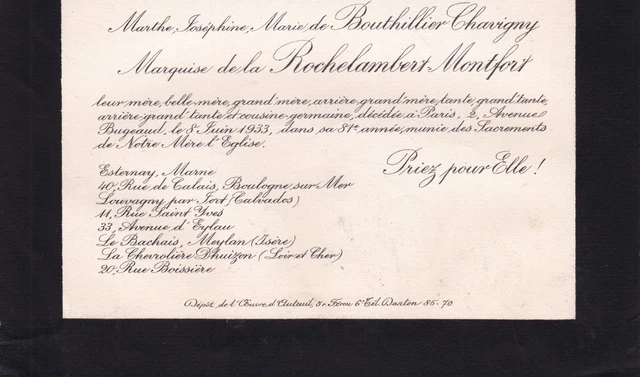 Marthe, Joséphine, Marie, de Bouthillier Chavigny
Marquise de la Rochelambert-Montfort
leur mère, belle-mère, grand'mère, arrière-grand'mère, tante, grand'tante,
arrière-grand'tante et cousine-germaine, décédée à Paris, 2, Avenue
Bugeaud, le 8 Juin 1933, dans sa 81e année, munie des Sacrements
de Notre Mère l'Eglise.
Priez pour Elle !
Esternay, Marne
40, Rue de Calais, Boulogne sur Mer
Louvagny par Jort (Calvados)
11, Rue Saint Yves
33, Avenue d'Eylau
Le Bachais, Meylan (Isère)
La Chevrolière Dhuizon (Loir et Cher)
20, Rue Boissière
Dépôt de l'Œuvre d'Auteuil, 5 r. Férou 6e Tél. Danton 85-70